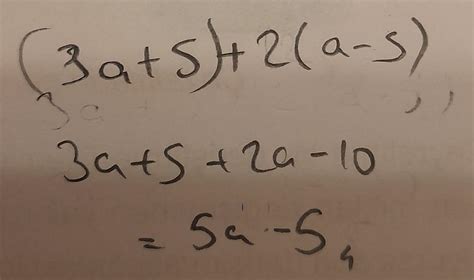 (3a+5)+2(a-5)
3a+5+2a-10
= 5a-5